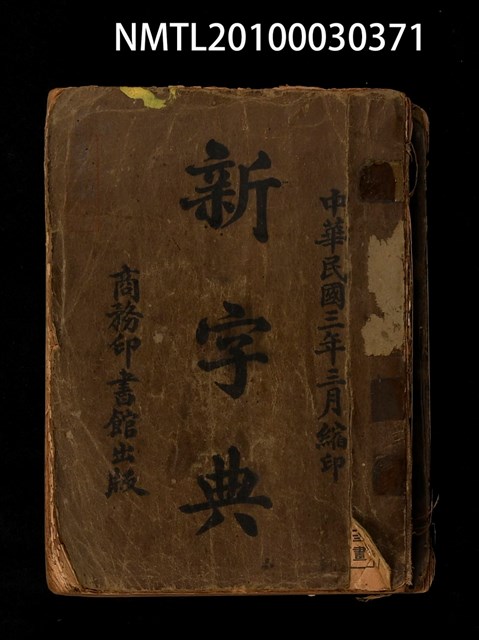 NMTL20100030371
中華民國三年三月縮印
新字典
商務印書館出版
畫